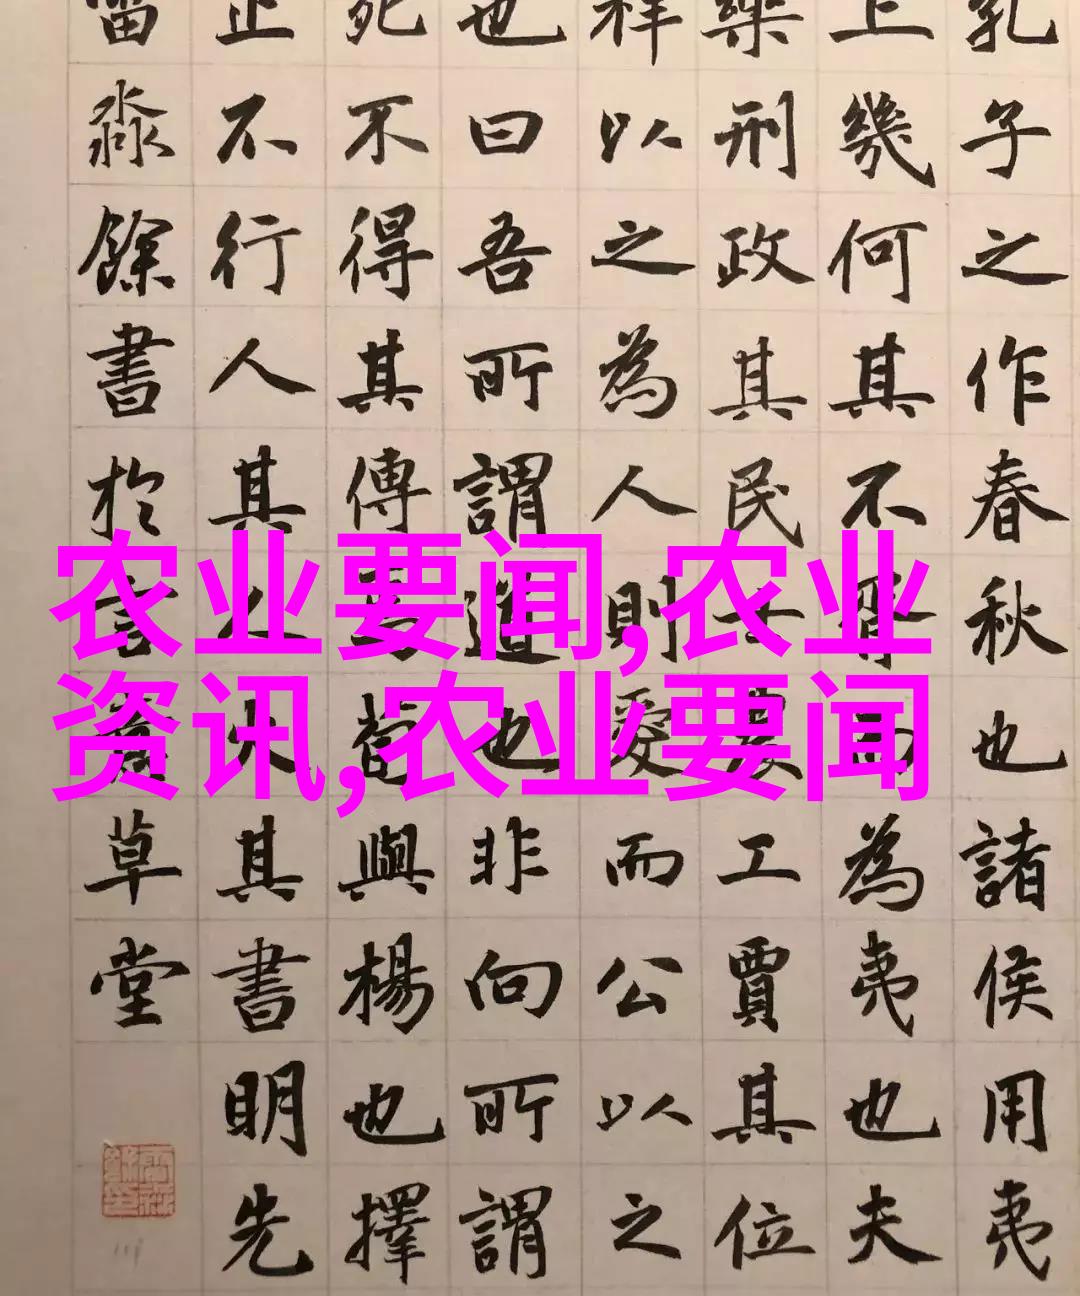 孔子之作春秋也諸侯用夷
上幾何其不胥而為夷也夫
樂刑政其民士農工賈其位
祥以之為人則愛而公以之
也曰吾所謂道也非向所謂
死不得其傳焉荀與楊也擇
止不行人其人火其書明先
淼餘書於草堂
农业要闻,农业
资讯,农业要闻